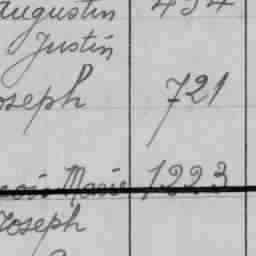 Augustin 434
Justin
Joseph 721
Marie 1223
Joseph